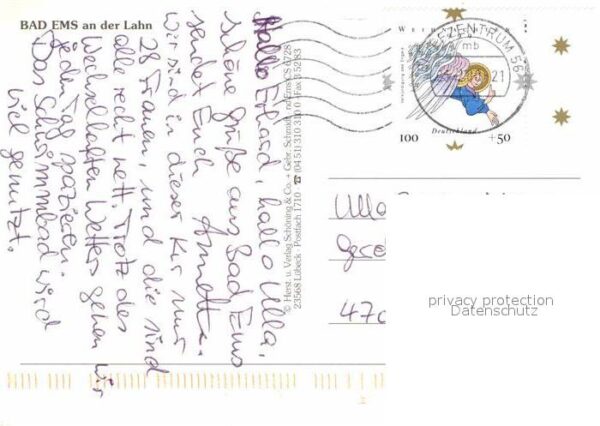 BAD EMS an der Lahn
Hallo Erhard, hallo Ulla,
schöne Grüße aus Bad Ems
sendet Euch Annette.
Wir sind in dieser Kur nur
28 Frauen, und die sind
alle recht nett. Trotz des
wechselhaften Wetters gehen wir
jeden Tag spazieren.
Das Schwimmbad wird
viel genutzt.
© Herst. u. Verlag Schöning & Co. + Gebr. Schmidt
23568 Lübeck · Postfach 1710 ☎ (04 51) 3 10 31 0
ZENTRUM 56
mb
21
100 +50
Deutschland
47
privacy protection
Datenschutz